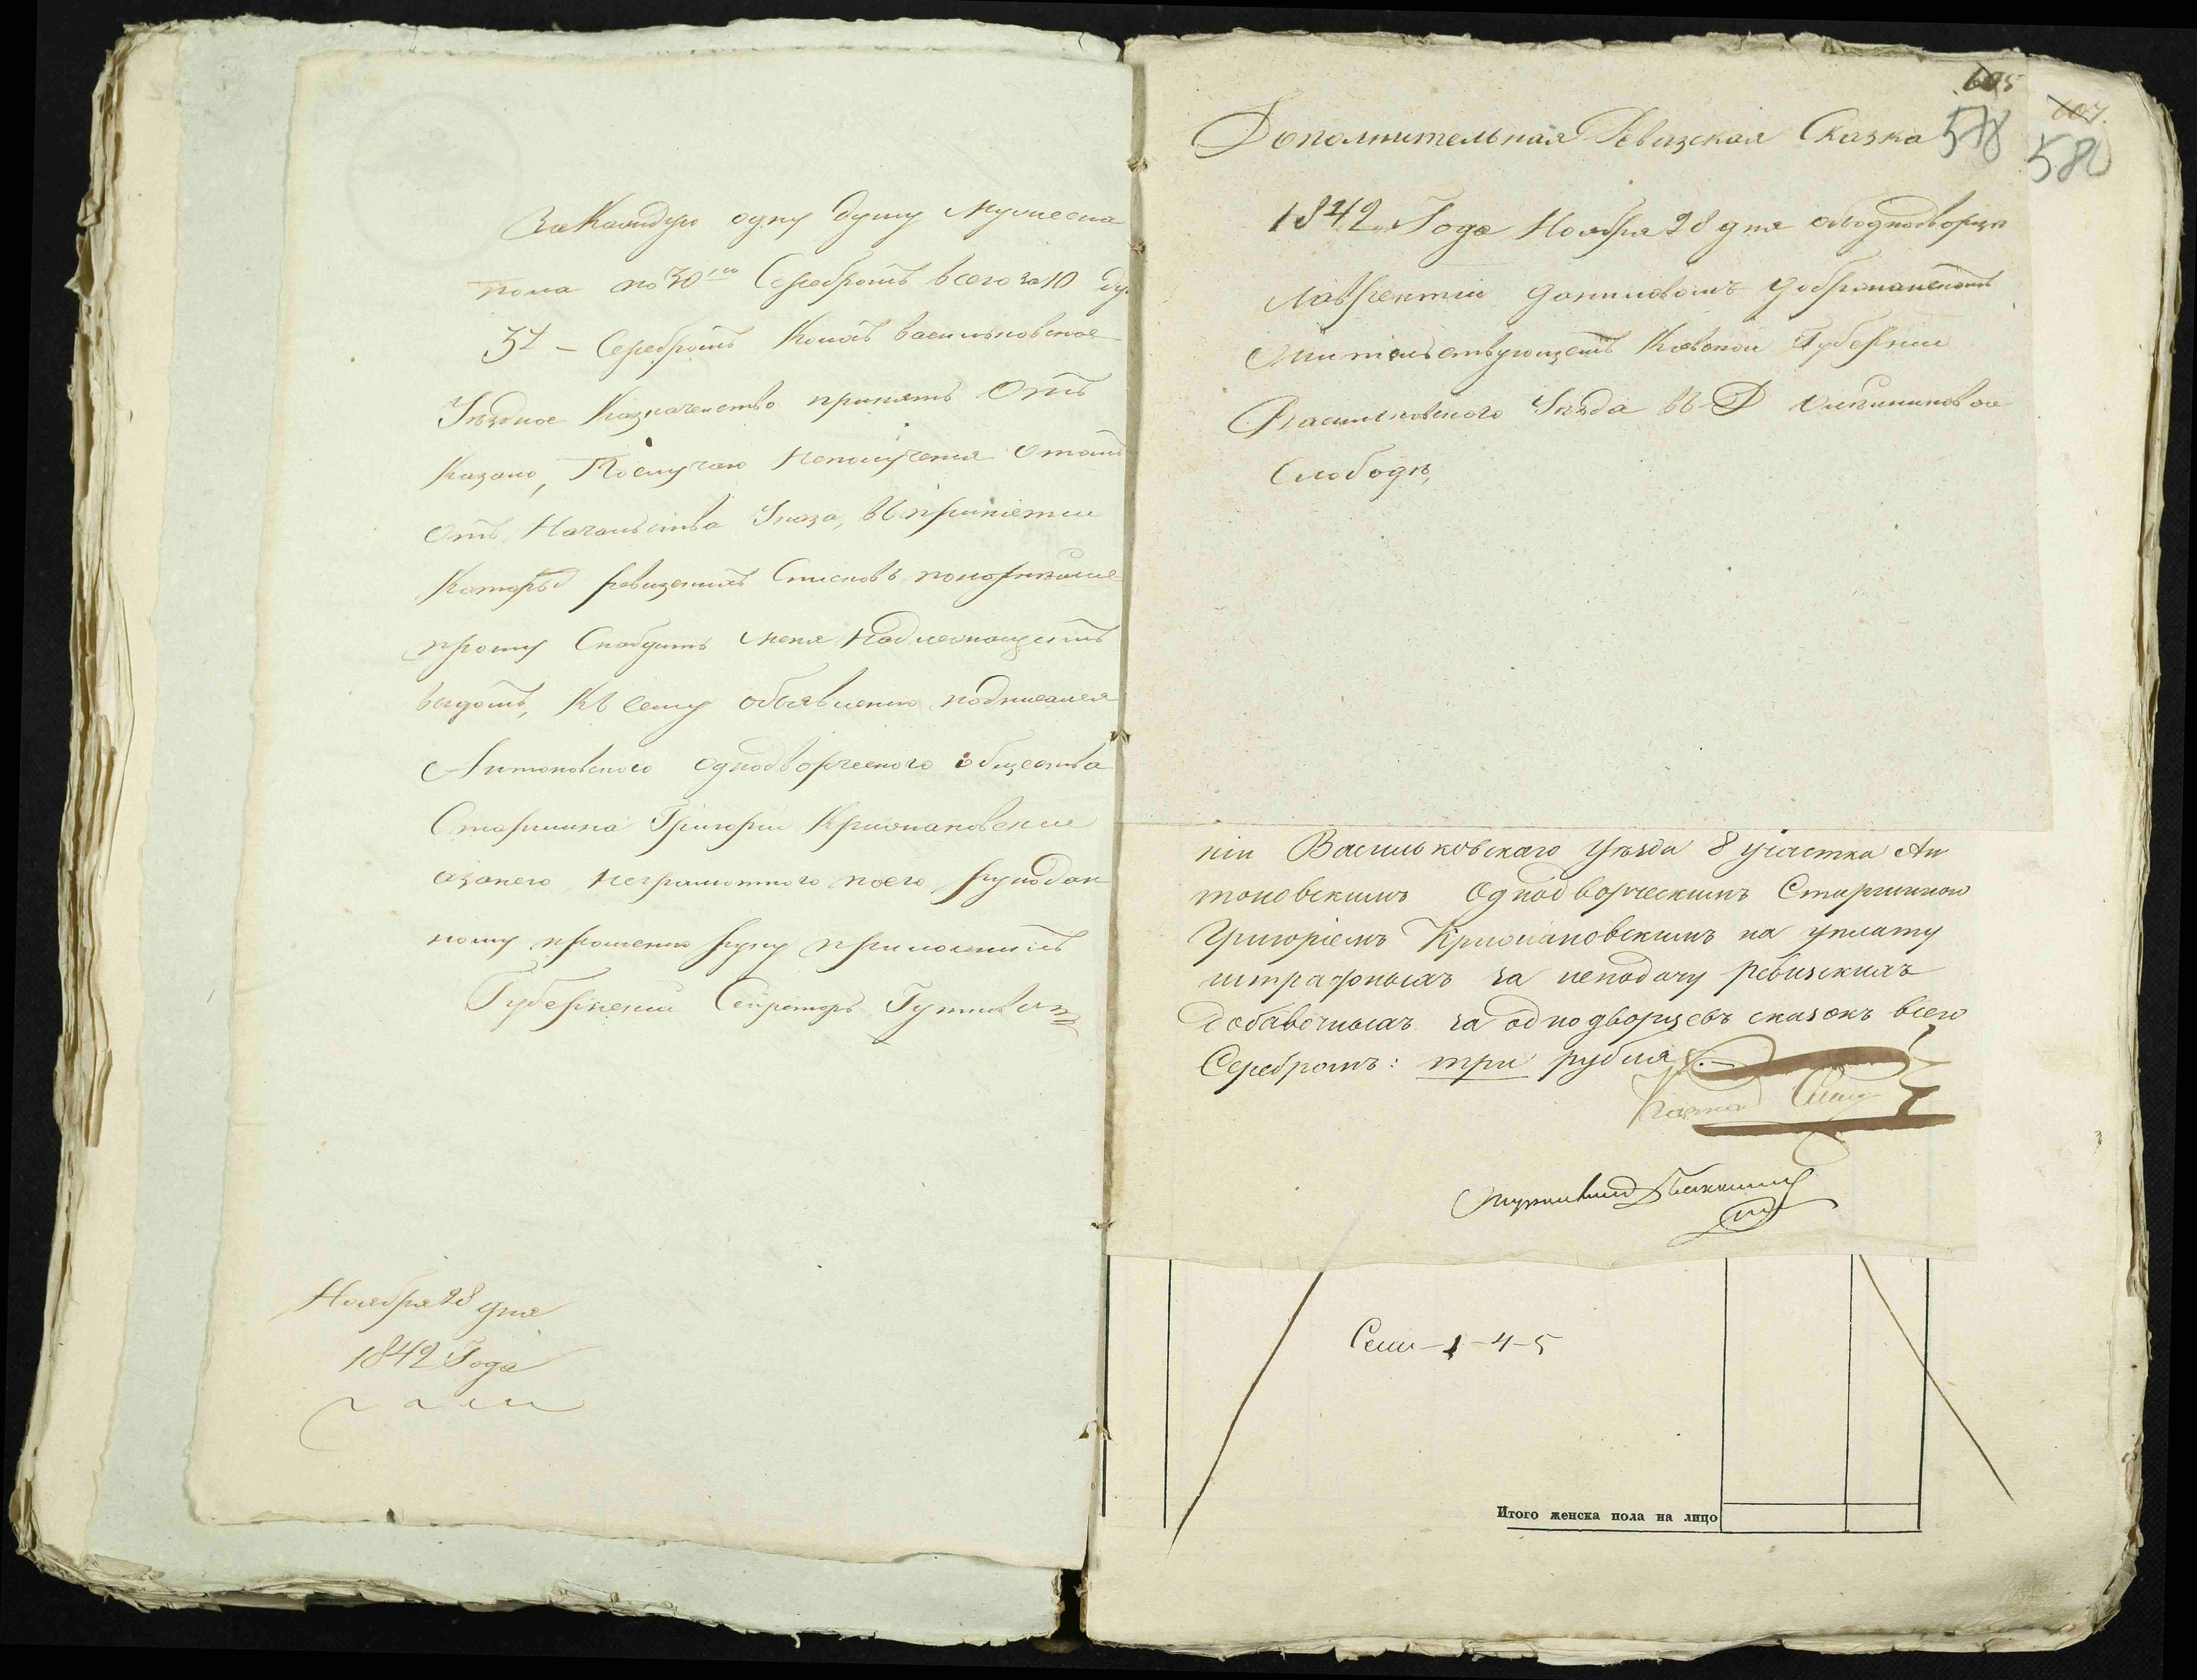 За Каждую одну душу Мужеска
пола по 30 Серебромъ всего за 10 ду
3 – Серебромъ Коихъ васильковское
Уѣздное Казначейство принять Отъ
Казало, По случаю Неполучения
Отъ Начальства Указа, въ принятии
Которыхъ ревизскихъ Списковъ
прошу Снабдить меня Надлежащимъ
видомъ, Къ сему объявлению подписался
Антоновского однодворческого общества
Старшина Григорий Крижановский
а занего неграмотного поего рукодан
ному прошению руку приложилъ
Губернский Секретарь
Ноября 28 дня
1842 Года
605
607.
578
580
Дополнительная Ревизская Сказка
1842 Года Ноября 28 дня ободнодворцѣ
Лаврентии Даниловомъ
Жительствующемъ Киевской Губернии
Васильковского Уѣзда въ Д
Слободѣ,
ніи Васильковскаго Уѣзда 8 участка Ан
тоновскимъ Однодворческимъ Старшиною
Григоріемъ Крижановскимъ на уплату
штрафныхъ за неподачу Ревизскихъ
добавочныхъ за однодворцевъ сказокъ всего
Серебромъ: три рубля
Сем – 1 – 4 – 5
Итого женска пола на лицо